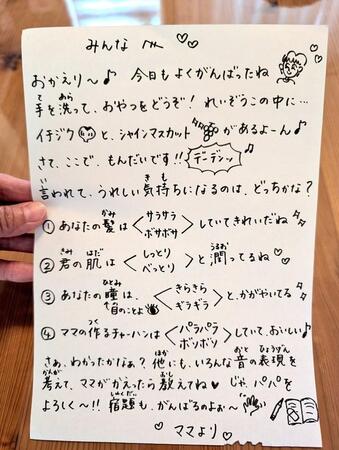 みんなへ
おかえり〜♪ 今日もよくがんばったね
手を洗って、おやつをどうぞ！れいぞうこの中に…
イチジクと、シャインマスカットがあるよーん♪
さて、ここで、もんだいです!! デデンッ
言われて、うれしい気持ちになるのは、どっちかな？
① あなたの髪は＜サラサラ ボサボサ＞していてきれいだね
② 君の肌は＜しっとり べっとり＞と潤ってるね♡
③ あなたの瞳は、＜きらきら ギラギラ＞と、かがやいてる
目のことよ
④ ママの作るチャーハンは＜パラパラ ボソボソ＞していて、おいしい♪
さぁ、わかったかなぁ？他にも、いろんな音の表現を
考えて、ママがかえったら教えてね♥ じゃ、パパを
よろしく〜!! 宿題も、がんばるのよぉ〜
ママより♡